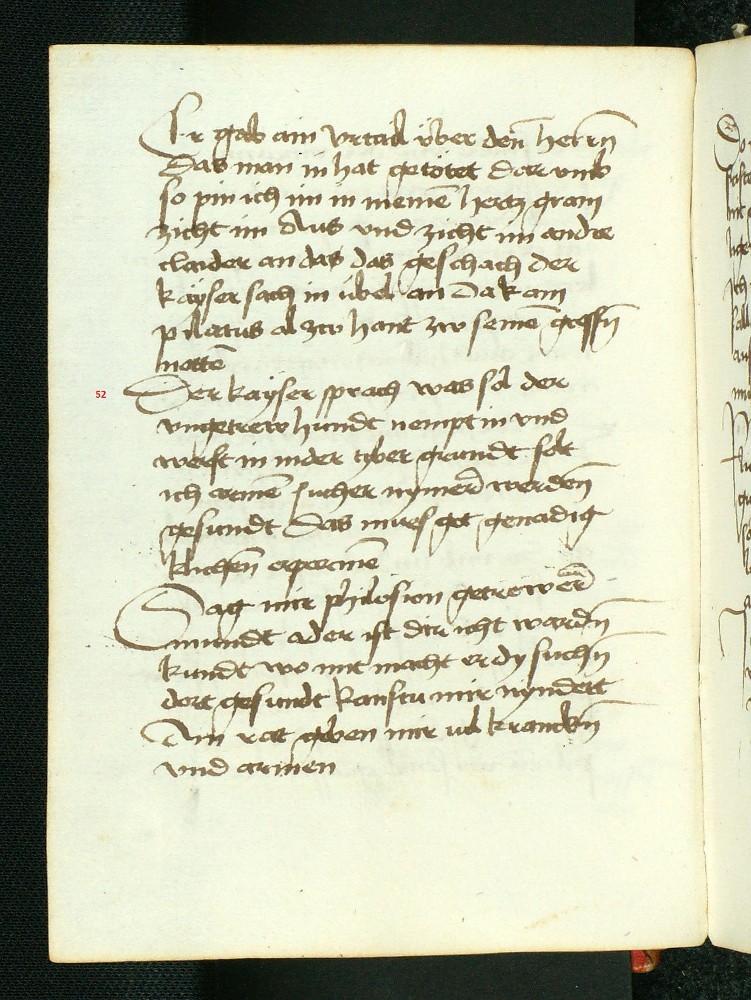 Er gab ain vrtail vber den herrn
Das man in hat getötet dar vmb
so pin ich im in meinē hertz gram
zicht im Aus vnd zicht im andre
claider an das das geschach der
kayser sach in übel an Da kam
pilatus al zw hant zw seinē grossn̄
notten
52 Der kayser sprach was sol der
vngetrew hundt nempt in vnd
werft in in der tyber grundt solt
ich armē sucher nymer werden̄
gesundt Das mues got genadig
klichen̄ erparmē
Sag mir philosion getrewer
mundt ader ist dir icht wordn̄
kundt wo mit macht er dy suchn̄
dort gesundt kanstu mir nyndert
Ain rat geben mir vil kranckn̄
vnd armen